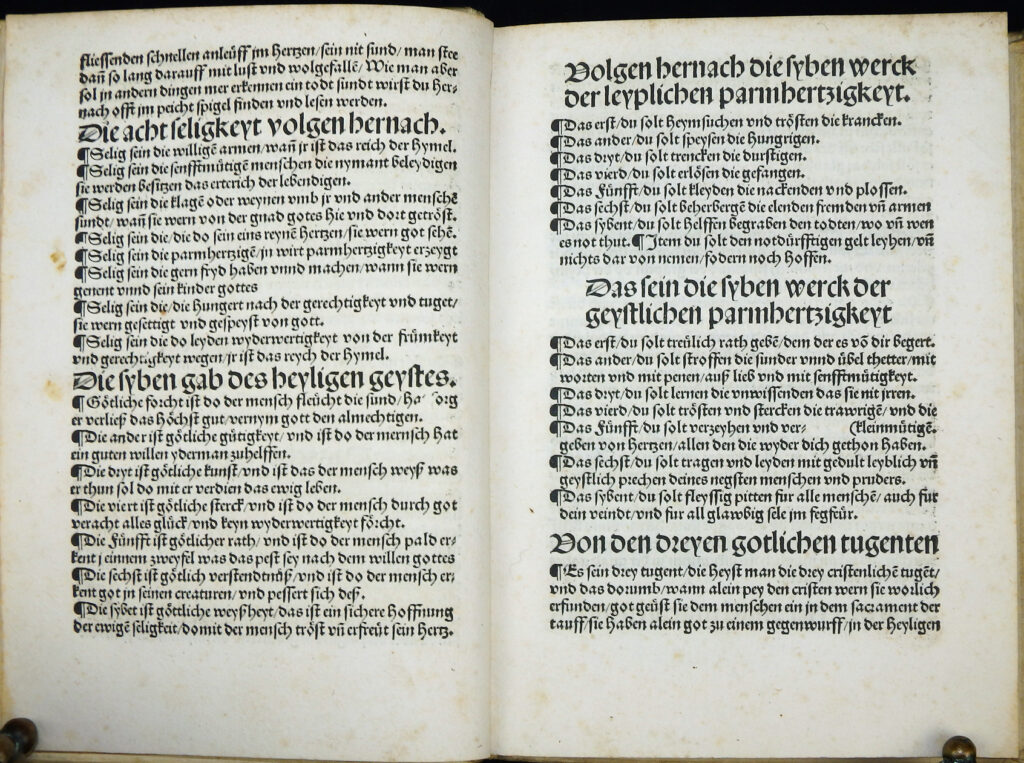 fliessenden schnellen anleüff jm Hertzen/sein nit sund/ man stee
dañ so lang darauff mit lust vnd wolgefallē/Wie man aber
sol in andern dingen mer erkennen ein todt sundt wirst du Her-
nach offt jm peicht spigel finden vnd lesen werden.
Die acht seligkeyt volgen hernach.
¶Selig sein die willigē armen/wañ jr ist das reich der Hymel.
¶Selig sein die senfftmütigē menschen die nymant beleydigen
sie werden besitzen das erterich der lebendigen.
¶Selig sein die klagē oder weynen vmb jr vnd ander menschē
sundt/wañ sie wern von der gnad gotes Hie vnd dort getröst.
¶Selig sein die/die do sein eins reynē Hertzen/sie wern got sehē.
¶Selig sein die parmhertzigē/jn wirt parmhertzigkeyt erzeygt
¶Selig sein die gern fryd haben vnnd machen/wann sie wern
genent vnnd sein kinder gottes
¶Selig sein die/die Hungert nach der gerechtigkeyt vnd tuget/
sie wern gesettigt vnd gespeyst von gott.
¶Selig sein die do leyden wyderwertigkeyt von der frümkeyt
vnd gerechtigkeyt wegen/jr ist das reych der Hymel.
Die syben gab des heyligen geystes.
¶Götliche forcht ist do der mensch fleücht die sund/ org
er verließ das Höchst gut/vernym gott den almechtigen.
¶Die ander ist götliche gütigkeyt/vnd ist do der mernsch Hat
ein guten willen yderman zuhelffen.
¶Die dryt ist götliche kunst/vnd ist das der mensch weyß was
er thun sol do mit er verdien das ewig leben.
¶Die viert ist götliche sterck/vnd ist do der mensch durch got
veracht alles glück/vnd keyn wyderwertigkeyt förcht.
¶Die Fünfft ist götlicher rath/vnd ist do der mensch pald er-
kent j einnem zweyfel was das pest sey nach dem willen gottes
¶Die sechst ist götlich verstendtnüß/vnd ist do der mensch er-
kent got jn seinen creaturen/vnd pessert sich deß.
¶Die sybet ist göttliche weyßheyt/das ist ein sichere Hoffnung
der ewigē seligkeit/domit der mensch tröst vñ erfreüt sein Hertz.
Volgen hernach die syben werck
der leyplichen parmhertzigkeyt.
¶Das erst/du solt heymsuchen vnd trösten die krancken.
¶Das ander/du solt speysen die Hungrigen.
¶Das dryt/du solt trencken die durstigen.
¶Das vierd/du solt erlösen die gefangen.
¶Das Fünfft/du solt kleyden die nackenden vnd plossen.
¶Das sechst/du solt beherbergē die elenden fremden vñ armen
¶Das sybent/du solt Helffen begraben den todten/wo vñ wen
es not thut. ¶Jtem du solt den notdürfftigen gelt leyhen/vñ
nichts dar von nemen/fodern noch Hoffen.
Das sein die syben werck der
geystlichen parmhertzigkeyt
¶Das erst/du solt treülich rath gebē/dem der es vō dir begert.
¶Das ander/du solt stroffen die sunder vnnd übel thetter/mit
worten vnd mit penen/auß lieb vnd mit senfftmütigkeyt.
¶Das dryt/du solt lernen die vnwissenden das sie nit jrren.
¶Das vierd/du solt trösten vnd stercken die trawrigē/vnd die
¶Das Fünfft/du solt verzeyhen vnd ver- (kleinmütigē.
geben von Hertzen/allen den die wyder dich gethon haben.
¶Das sechst/du solt tragen vnd leyden mit gedult leyblich vñ
geystlich prechen deines negsten menschen vnd pruders.
¶Das sybent/du solt fleyssig pitten fur alle menschē/auch fur
dein veindt/vnd fur all glawbig sele jm fegfeür.
Von den dreyen gotlichen tugenten
¶Es sein drey tugent/die Heyst man die drey cristenlichē tugēt/
vnd das dorumb/wann alein pey den cristen wern sie worlich
erfunden/got geüst sie dem menschen ein jn dem sacrament der
tauff/sie Haben alein got zu einem gegenwurff/jn der Heyligen